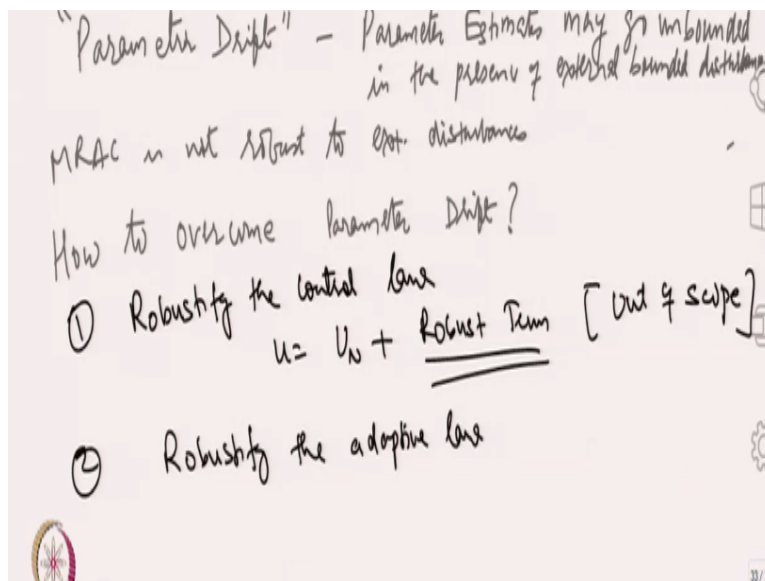 "Parameter Drift" - Parameter Estimates may go unbounded
in the presence of external bounded disturbance
MRAC is not robust to ext. disturbances
How to overcome Parameter Drift?
① Robustify the control law
u = U_N + Robust Term [out of scope]
② Robustify the adaptive law